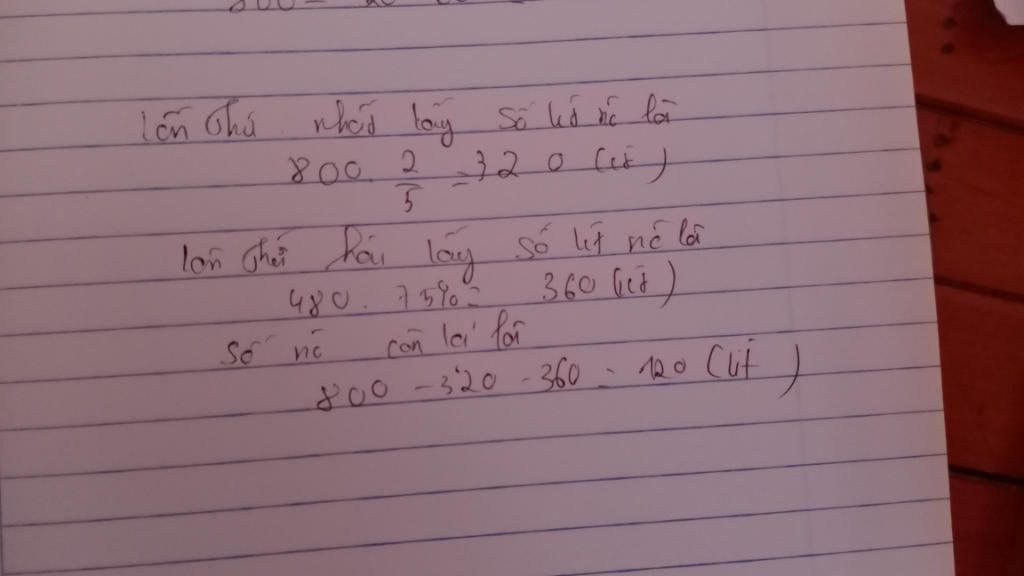 lần thứ nhất lấy số lít nc là
800. 2/5 = 320 (lít)
lần thứ hai lấy số lít nc là
480. 75% = 360 (lít)
số nc còn lại là
800 - 320 - 360 = 120 (lít)